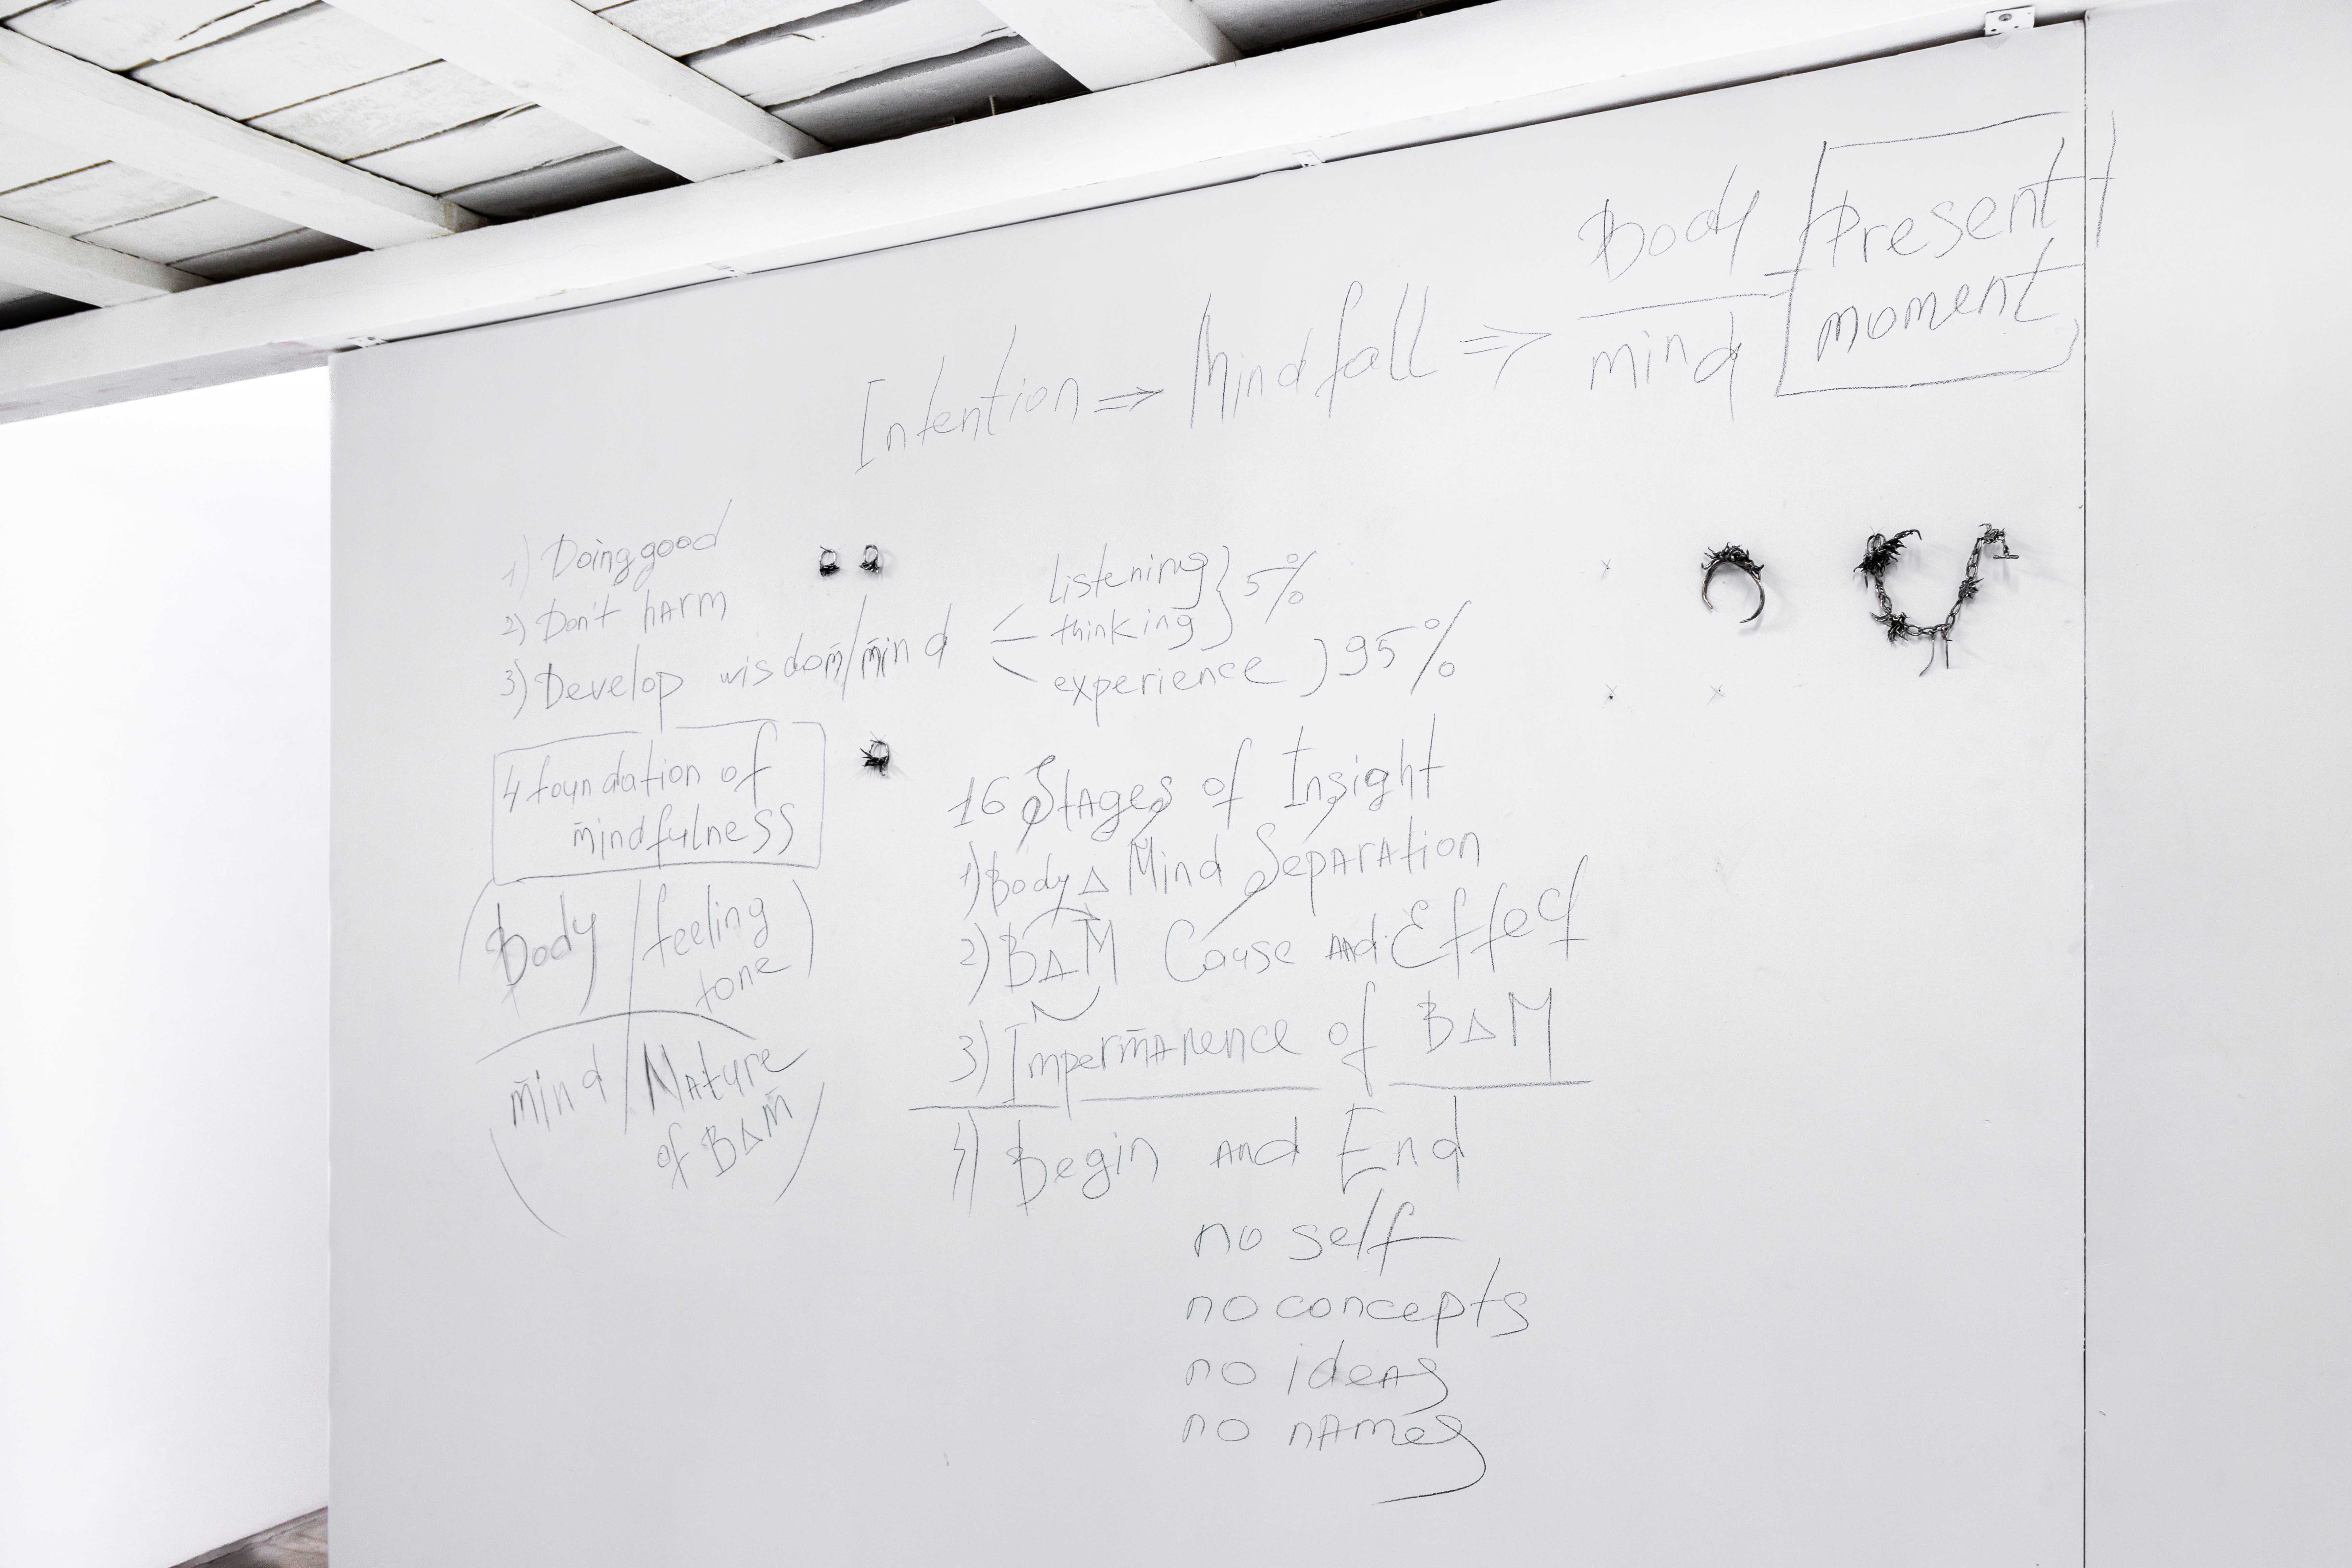 Intention ⇒ Mindfall ⇒ Body
mind
Present
moment
1) Doing good
2) Don't hARM
3) Develop wisdom/mind
listening
thinking } 5%
experience ) 95%
4 foundation of
mindfulness
Body / feeling
tone
mind / NAture
of BΔM
16 StAges of Insight
1) Body Δ Mind SepArAtion
2) BΔM Cause ANd Effect
3) ImpermAnence of BΔM
4) Begin ANd End
no self
no concepts
no ideAs
no nAmes